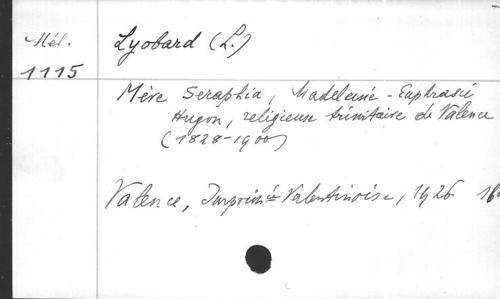 Mél.
1115
Lyobard (L.)
Mère Seraphia, Madeleine-Euphrasie
Hugon, religieuse trinitaire de Valence
(1828-1900)
Valence, Imprim^ie Valentinoise, 1926 16